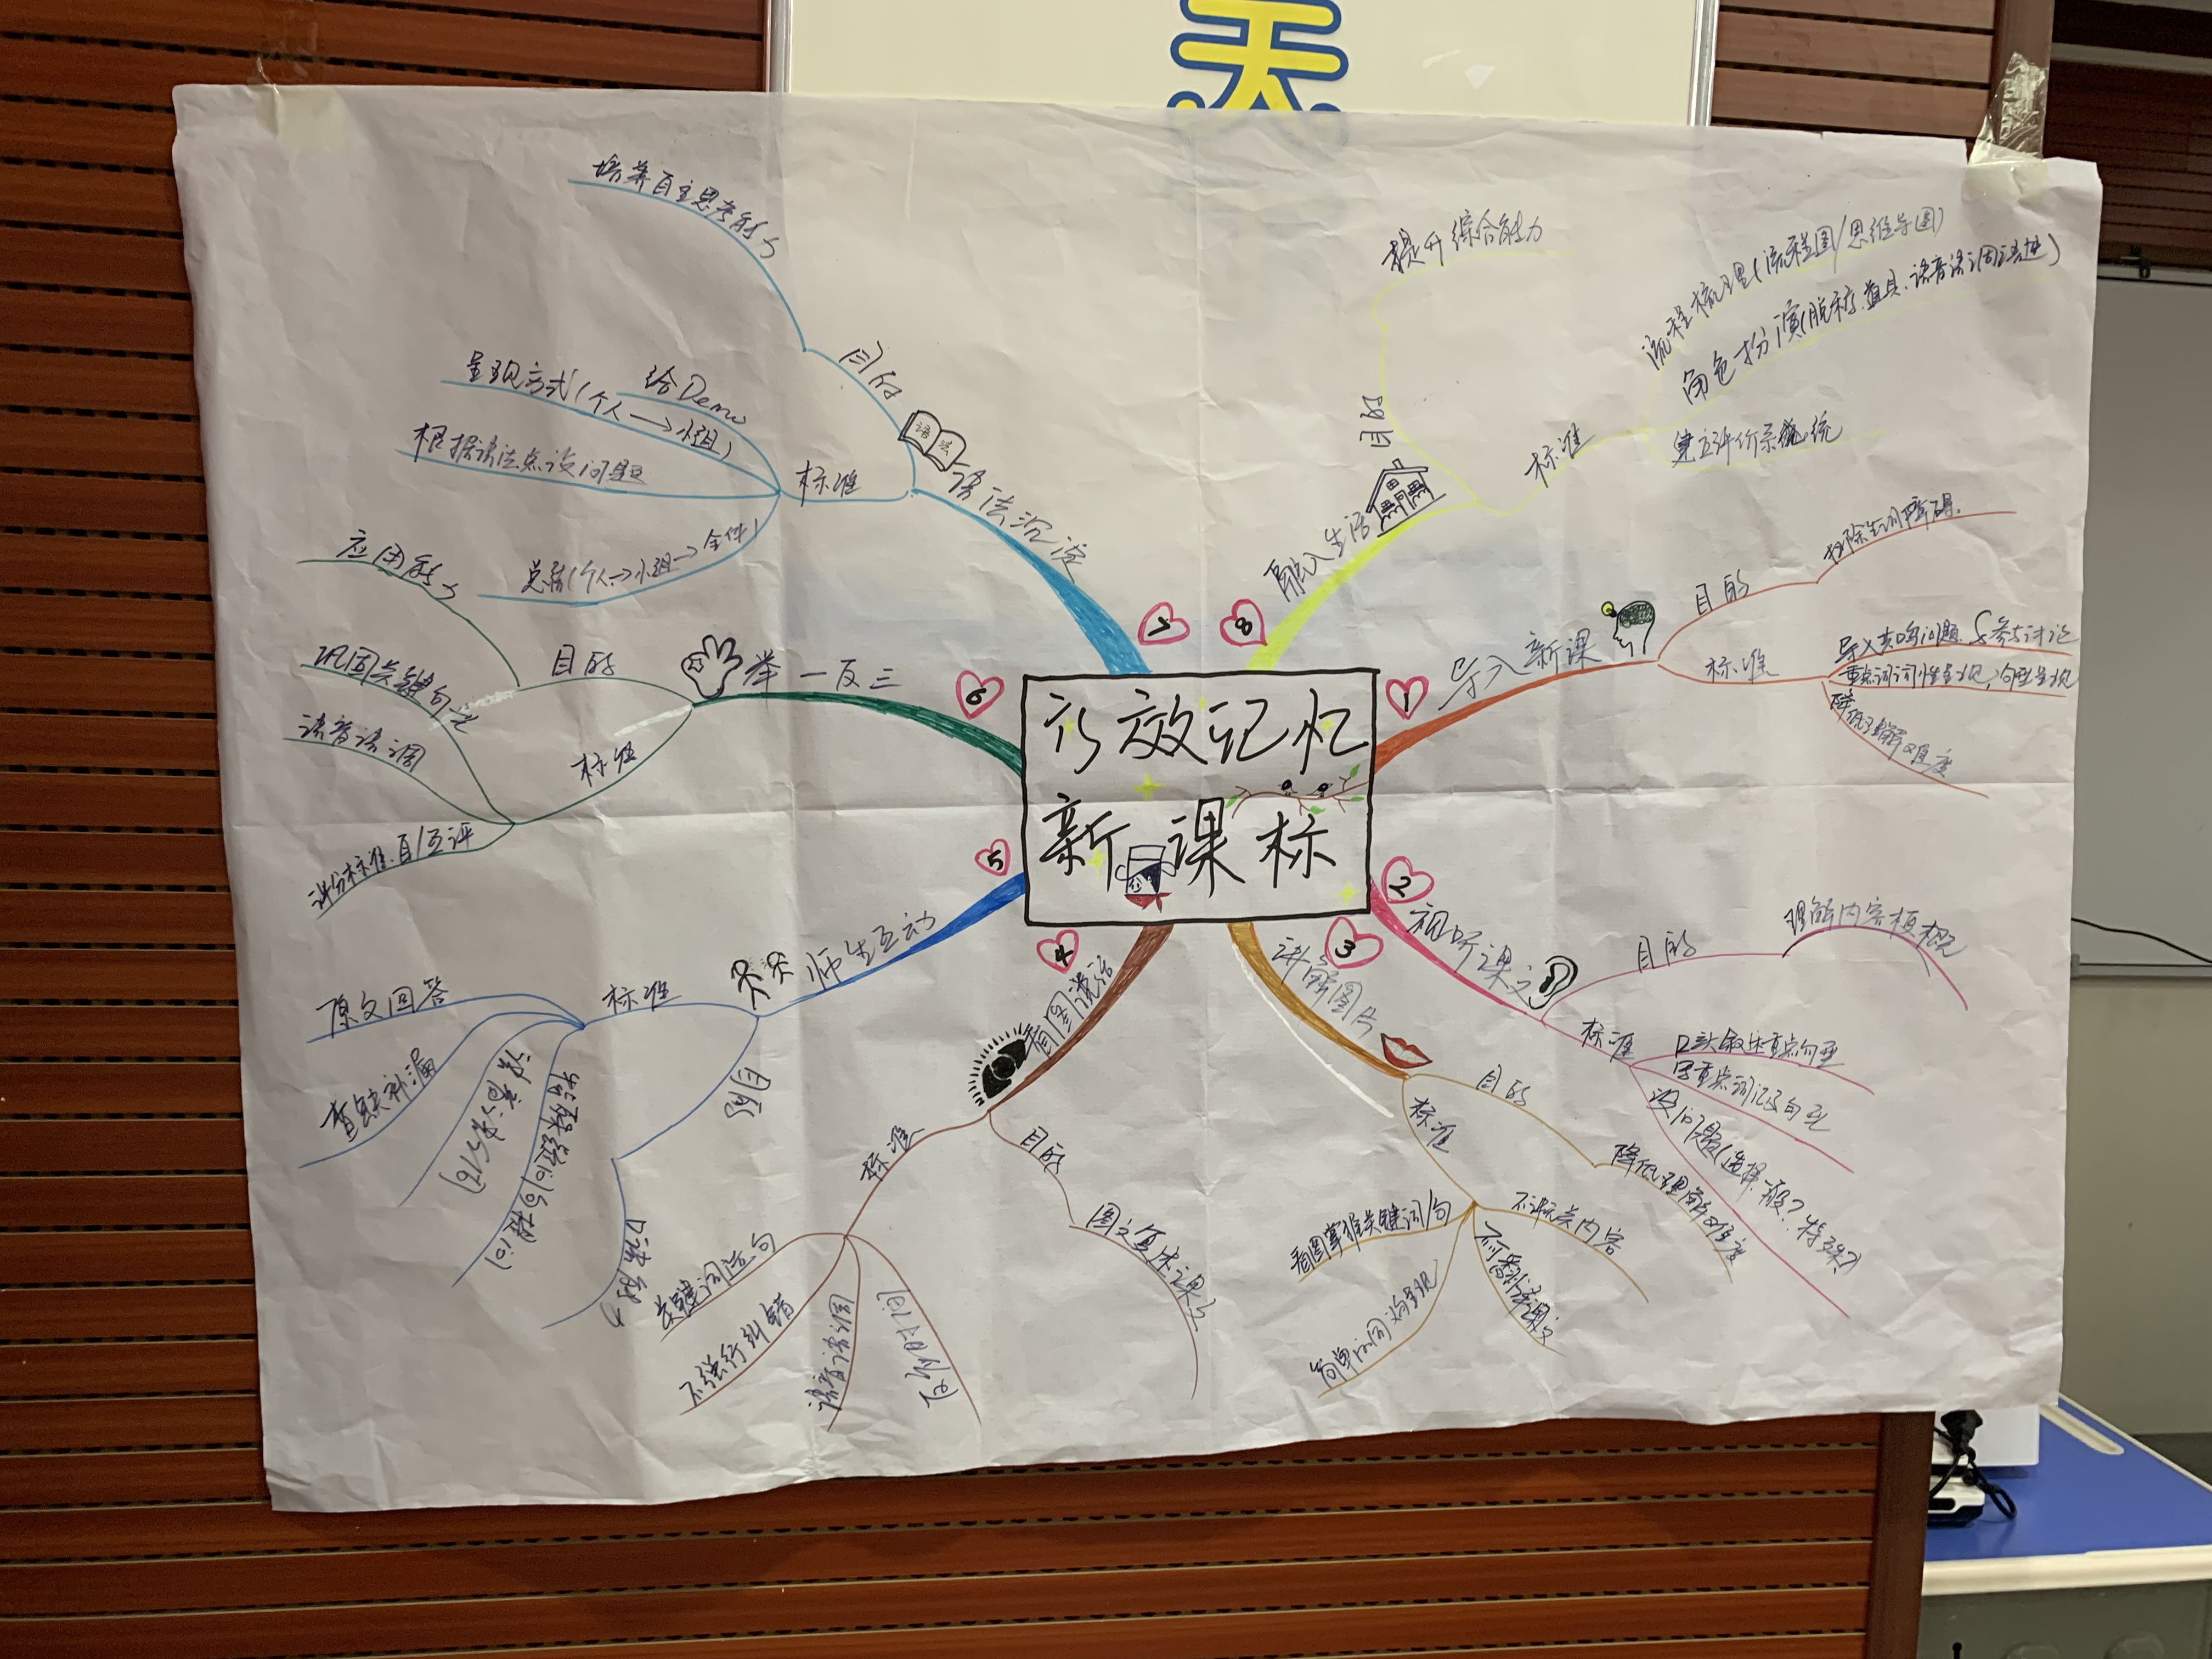 天
高效记忆
新课标
1
导入新课
目的
扫除生词障碍.
标准
导入共鸣问题.&参与讨论
重点词词性呈现,句型呈现
降低理解难度
2
视听课文
目的
理解内容梗概
标准
口头叙述重点句型
重点词汇及句型
设问题(选择.一般?特殊?)
3
讲解图片
目的
降低理解难度
标准
不讲无关内容
不可翻译课文
看图掌握关键词/句
简单词同义词呈现
4
看图说话
目的
图文复述课文
标准
关键词造句
不强行纠错
语音语调
及时
5
师生互动
目的
口语能力
标准
原文回答
查缺补漏
6
举一反三
目的
应用能力
标准
巩固关键句型
语音语调
评分标准.自/互评
7
语法沉淀
语法
目的
培养自主思考能力
标准
给Demo
呈现方式(个人→小组)
根据语法点设问题
总结(个人→小组→全体)
8
融入生活
目的
提升综合能力
标准
流程梳理(流程图/思维导图)
角色扮演(脱稿.道具.语音语调语速)
建立评价系统